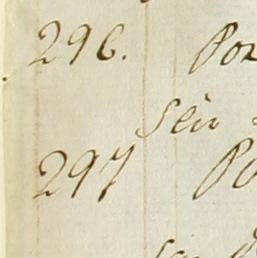 296. Po
sen
297 Po